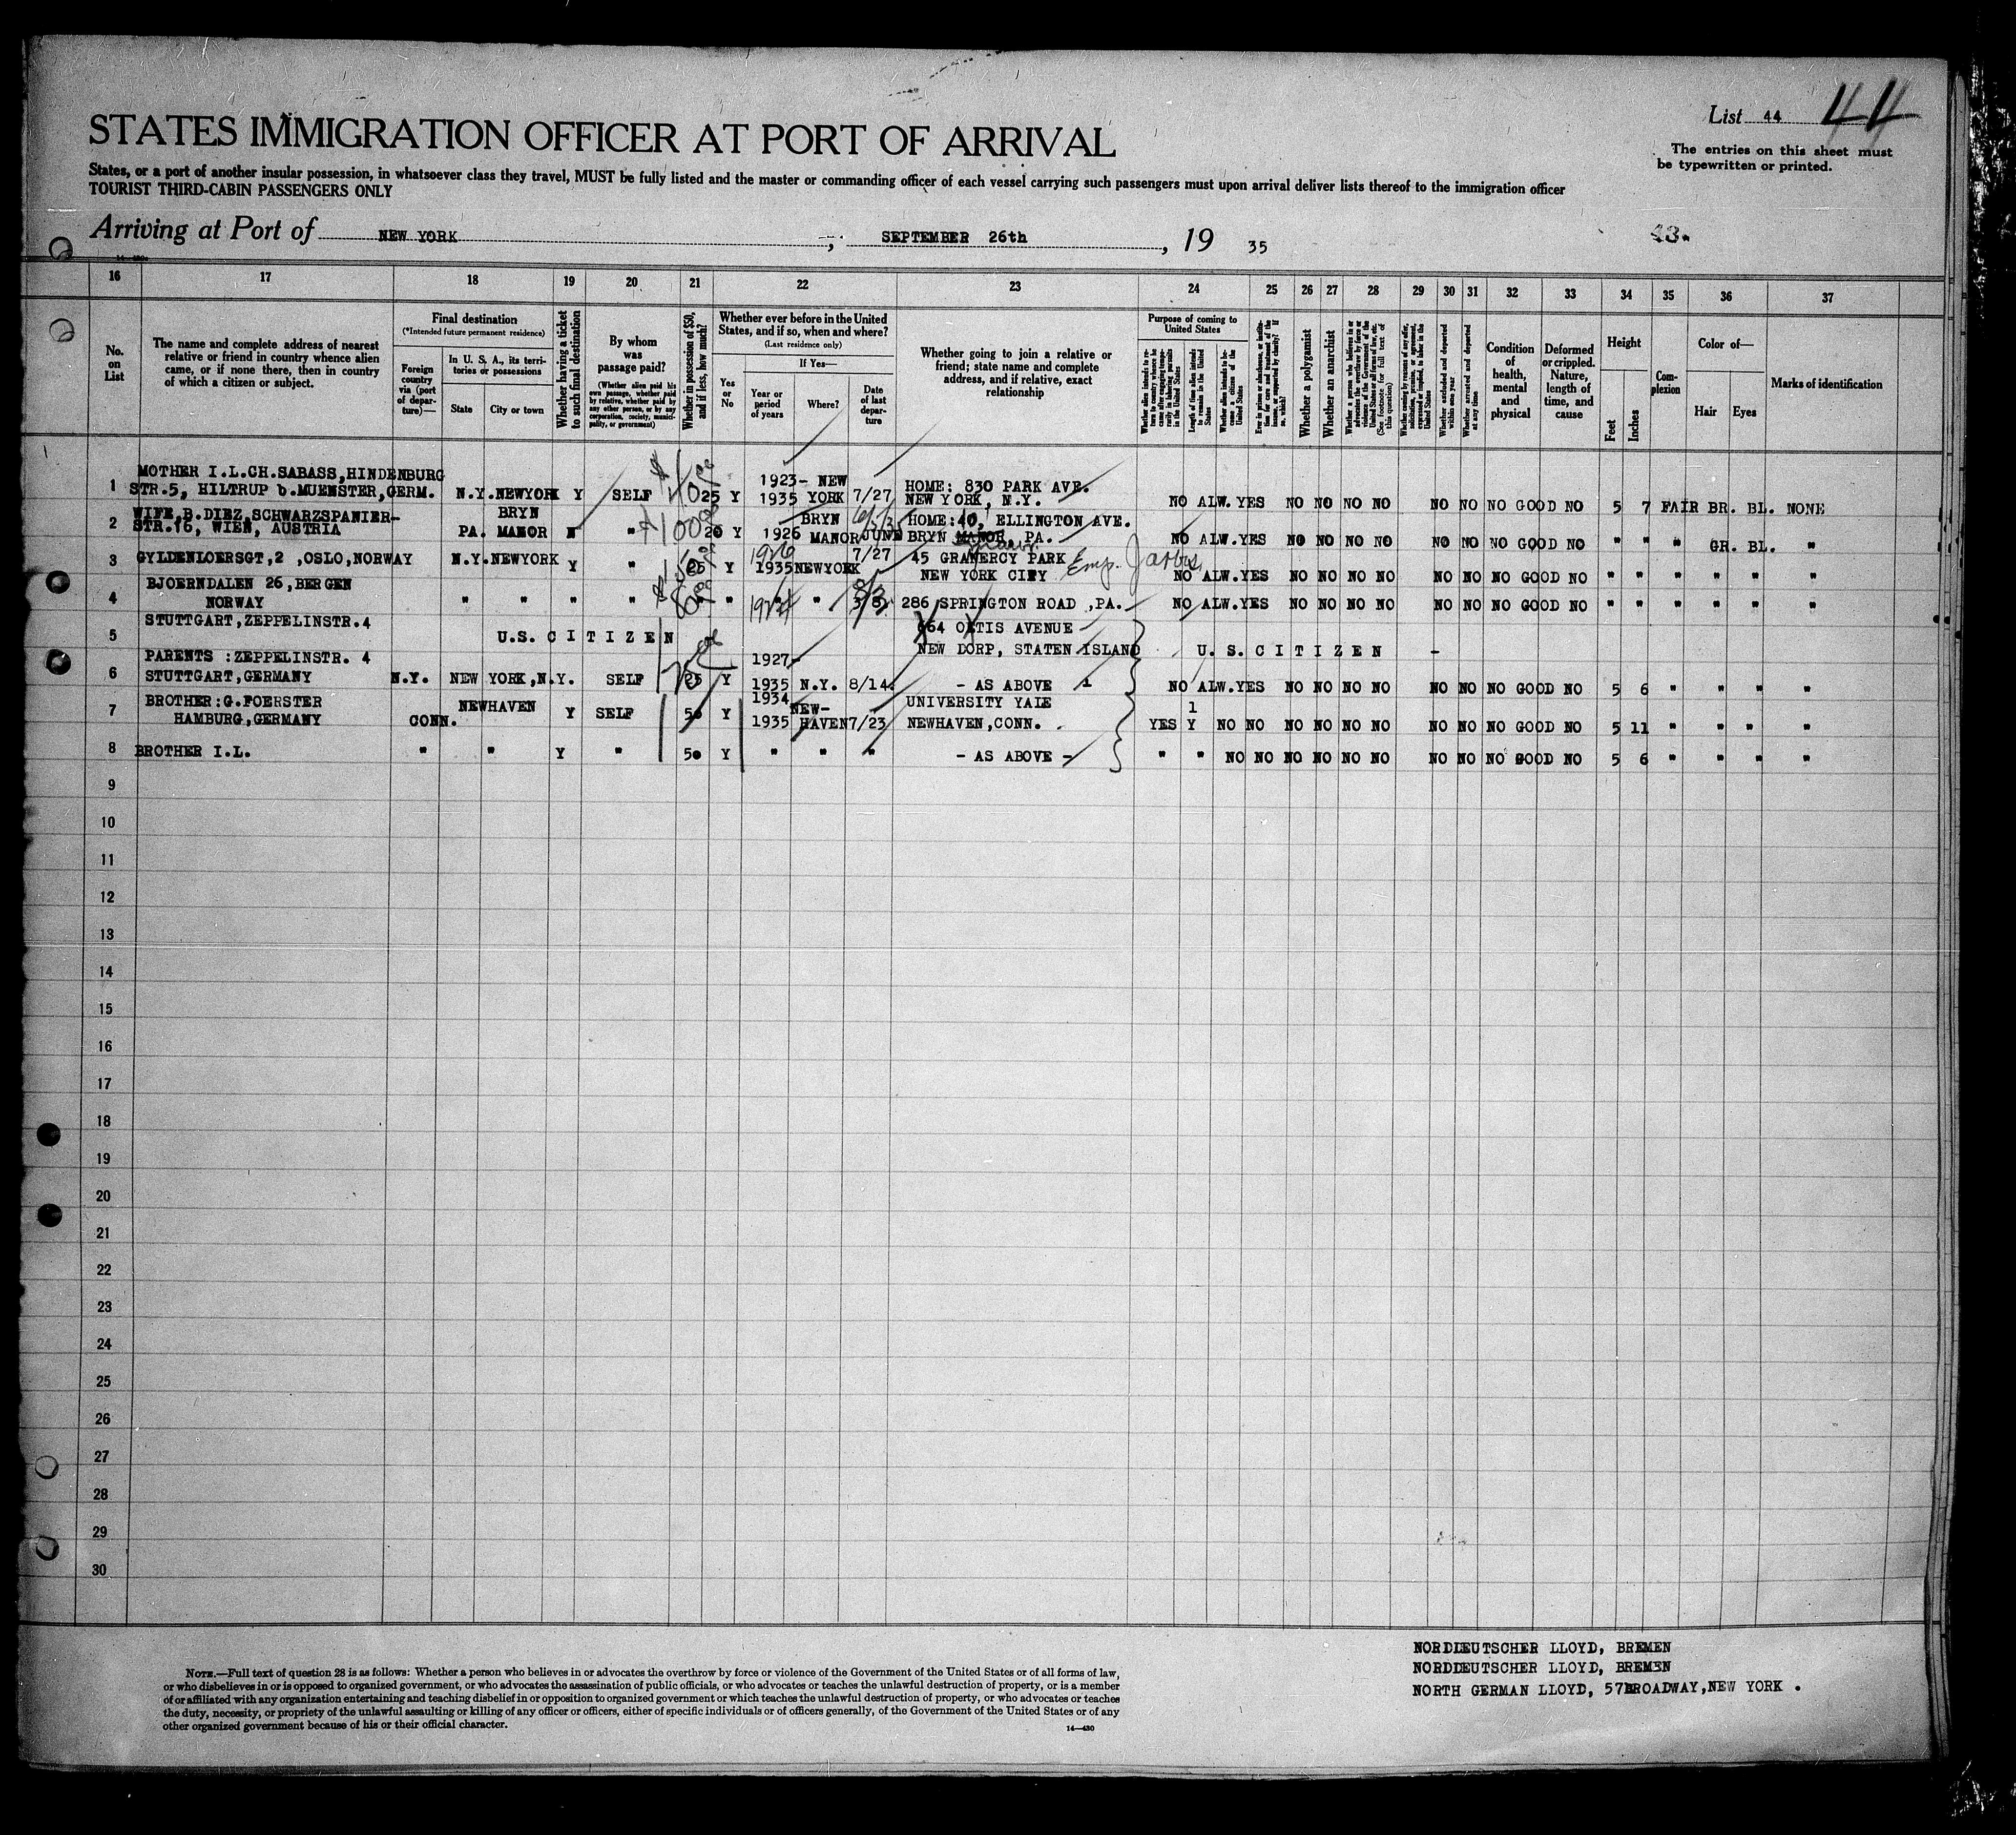 List 44 44
STATES IMMIGRATION OFFICER AT PORT OF ARRIVAL
The entries on this sheet must
be typewritten or printed.
States, or a port of another insular possession, in whatsoever class they travel, MUST be fully listed and the master or commanding officer of each vessel carrying such passengers must upon arrival deliver lists thereof to the immigration officer
TOURIST THIRD-CABIN PASSENGERS ONLY
Arriving at Port of NEW YORK, SEPTEMBER 26th, 19 35
43.
16 17 18 19 20 21 22 23 24 25 26 27 28 29 30 31 32 33 34 35 36 37
No. on List
The name and complete address of nearest
relative or friend in country whence alien
came, or if none there, then in country
of which a citizen or subject.
Final destination
(*Intended future permanent residence)
Foreign country via (port of departure)—
In U. S. A., its territories or possessions
State
City or town
Whether having a ticket to such final destination
By whom was passage paid?
(Whether alien paid his own passage, whether paid by relative, whether paid by any other person, or by any corporation, society, municipality, or government)
Whether in possession of $50, and if less, how much?
Whether ever before in the United
States, and if so, when and where?
(Last residence only)
Yes or No
If Yes—
Year or period of years
Where?
Date of last departure
Whether going to join a relative or
friend; state name and complete
address, and if relative, exact
relationship
Purpose of coming to United States
Length of time alien intends to remain in the United States
Whether a polygamist
Whether an anarchist
Whether arrested and deported at any time
Condition of health, mental and physical
Deformed or crippled. Nature, length of time, and cause
Height
Feet
Inches
Complexion
Color of—
Hair
Eyes
Marks of identification
MOTHER I.L.CH.SABASS,HINDENBURG 1923- NEW HOME: 830 PARK AVE.
1 STR.5, HILTRUP b.MUENSTER,GERM. N.Y. NEWYORK Y SELF 25 Y 1935 YORK 7/27 NEW YORK, N.Y. NO ALW. YES NO NO NO NO NO NO NO GOOD NO 5 7 FAIR BR. BL. NONE
WIFE B.DIEZ,SCHWARZSPANIER- BRYN BRYN HOME:40, ELLINGTON AVE.
2 STR.16, WIEN, AUSTRIA PA. MANOR N " 20 Y 1926 MANOR JUNE BRYN MANOR, PA. NO ALW. YES NO NO NO NO NO NO NO GOOD NO " " " GR. BL. "
3 GYLDENLOERSGT,2 ,OSLO,NORWAY N.Y. NEWYORK Y " 25 Y 1926 1935 NEWYORK 7/27 45 GRAMERCY PARK
NEW YORK CITY Emp. NO ALW. YES NO NO NO NO NO NO NO GOOD NO " " " " " "
BJOERNDALEN 26, BERGEN
4 NORWAY " " " " " " " " 286 SPRINGTON ROAD ,PA. NO ALW. YES NO NO NO NO NO NO NO GOOD NO " " " " " "
STUTTGART,ZEPPELINSTR.4
5 U.S. C I T I Z E N 664 OTIS AVENUE
NEW DORP, STATEN ISLAND U. S. C I T I Z E N -
PARENTS :ZEPPELINSTR. 4 1927-
6 STUTTGART,GERMANY N.Y. NEW YORK,N.Y. SELF 25 Y 1935 N.Y. 8/14. - AS ABOVE 1 NO ALW. YES NO NO NO NO NO NO NO GOOD NO 5 6 " " " "
BROTHER:G.FOERSTER NEWHAVEN 1934 NEW- UNIVERSITY YALE 1
7 HAMBURG,GERMANY CONN. Y SELF 50 Y 1935 HAVEN 7/23 NEWHAVEN,CONN. YES Y NO NO NO NO NO NO NO NO NO GOOD NO 5 11 " " " "
8 BROTHER I.L. " " Y " 50 Y " " " - AS ABOVE - " " NO NO NO NO NO NO NO NO NO GOOD NO 5 6 " " " "
9
10
11
12
13
14
15
16
17
18
19
20
21
22
23
24
25
26
27
28
29
30
NOTE.—Full text of question 28 is as follows: Whether a person who believes in or advocates the overthrow by force or violence of the Government of the United States or of all forms of law,
or who disbelieves in or is opposed to organized government, or who advocates the assassination of public officials, or who advocates or teaches the unlawful destruction of property, or is a member
of or affiliated with any organization entertaining and teaching disbelief in or opposition to organized government or which teaches the unlawful destruction of property, or who advocates or teaches
the duty, necessity, or propriety of the unlawful assaulting or killing of any officer or officers, either of specific individuals or of officers generally, of the Government of the United States or of any
other organized government because of his or their official character.
14—430
NORDDEUTSCHER LLOYD, BREMEN
NORDDEUTSCHER LLOYD, BREMEN
NORTH GERMAN LLOYD, 57BROADWAY,NEW YORK .